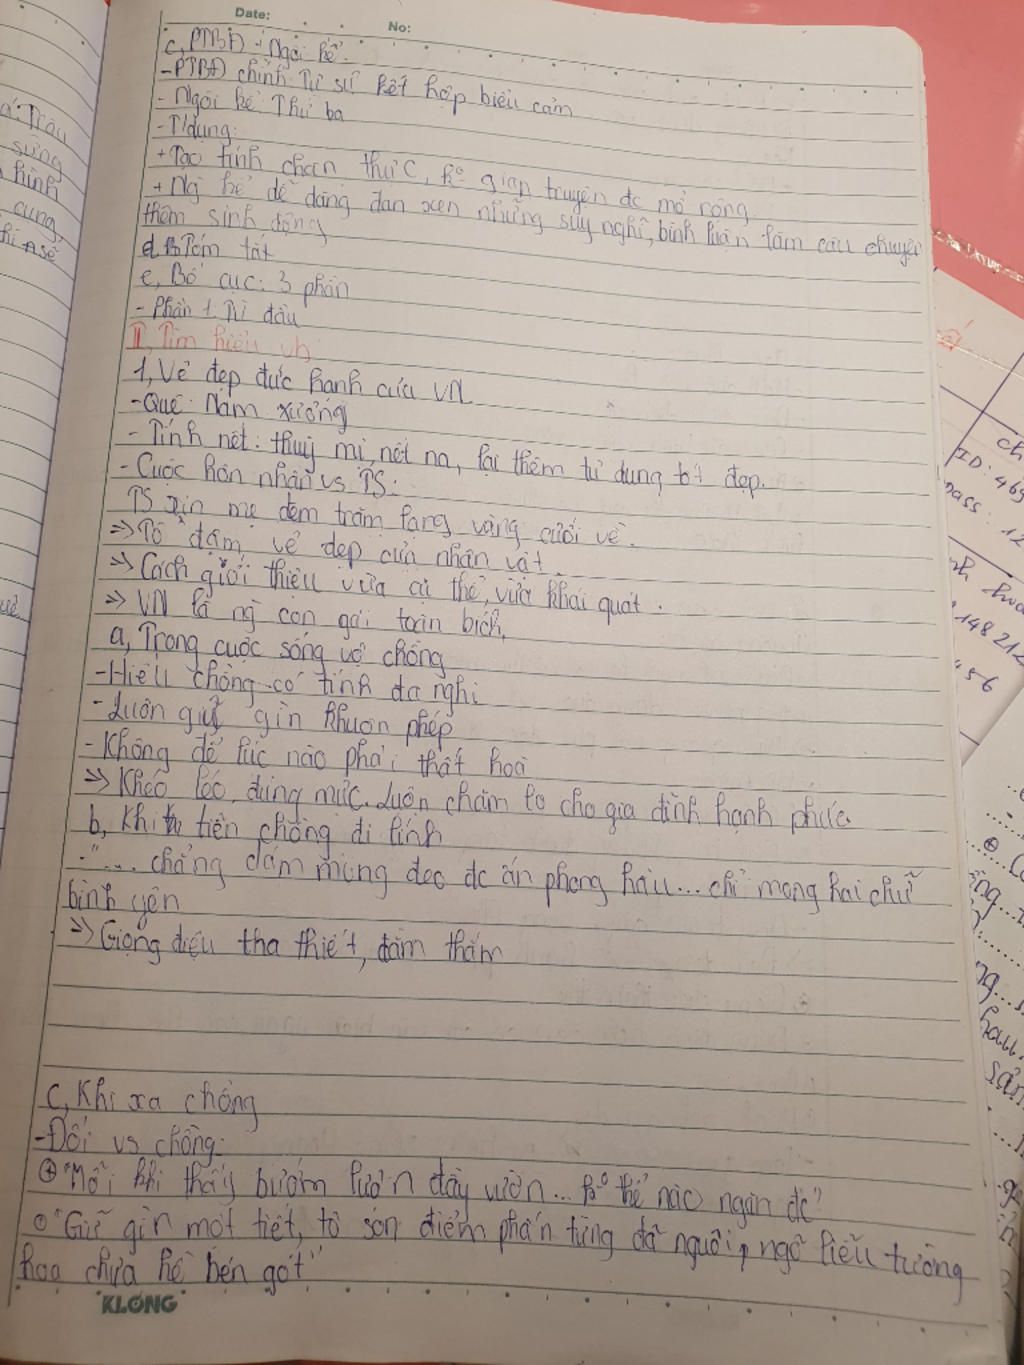 Date:
No:
c, PTBĐ - Ngôi kể.
- PTBĐ chính: Tự sự kết hợp biểu cảm
- Ngôi kể: Thứ ba
- T/dụng:
+ Tạo tính chân thực, ko gian truyện đc mở rộng.
+ Ng kể dễ dàng đan xen những suy nghĩ, bình luận làm câu chuyện
thêm sinh động
d, Tóm tắt
e, Bố cục: 3 phần
- Phần 1: Từ đầu
II, Tìm hiểu vb
1, Vẻ đẹp đức hạnh của VN
- Quê: Nam Xương
- Tính nết: thuỳ mị, nết na, lại thêm tư dung tốt đẹp.
- Cuộc hôn nhân vs TS:
TS xin mẹ đem trăm lạng vàng cưới về.
=> Tô đậm vẻ đẹp của nhân vật.
=> Cách giới thiệu vừa cụ thể, vừa khái quát.
=> VN là ng con gái toàn bích.
a, Trong cuộc sống vợ chồng
- Hiểu chồng có tính đa nghi
- Luôn giữ gìn khuôn phép
- Không để lúc nào phải thất hoà
=> Khéo léo, đúng mực. Luôn chăm lo cho gia đình hạnh phúc.
b, Khi tiễn chồng đi lính
- "... chẳng dám mong đeo đc ấn phong hầu... chỉ mong hai chữ
bình yên
=> Giọng điệu tha thiết, đằm thắm
c, Khi xa chồng
- Đối vs chồng:
"Mỗi khi thấy bướm lượn đầy vườn... ko thể nào ngăn đc"
"Giữ gìn một tiết, tô son điểm phấn từng đã nguôi, ngõ liễu tường
hoa chưa hề bén gót"
KLONG